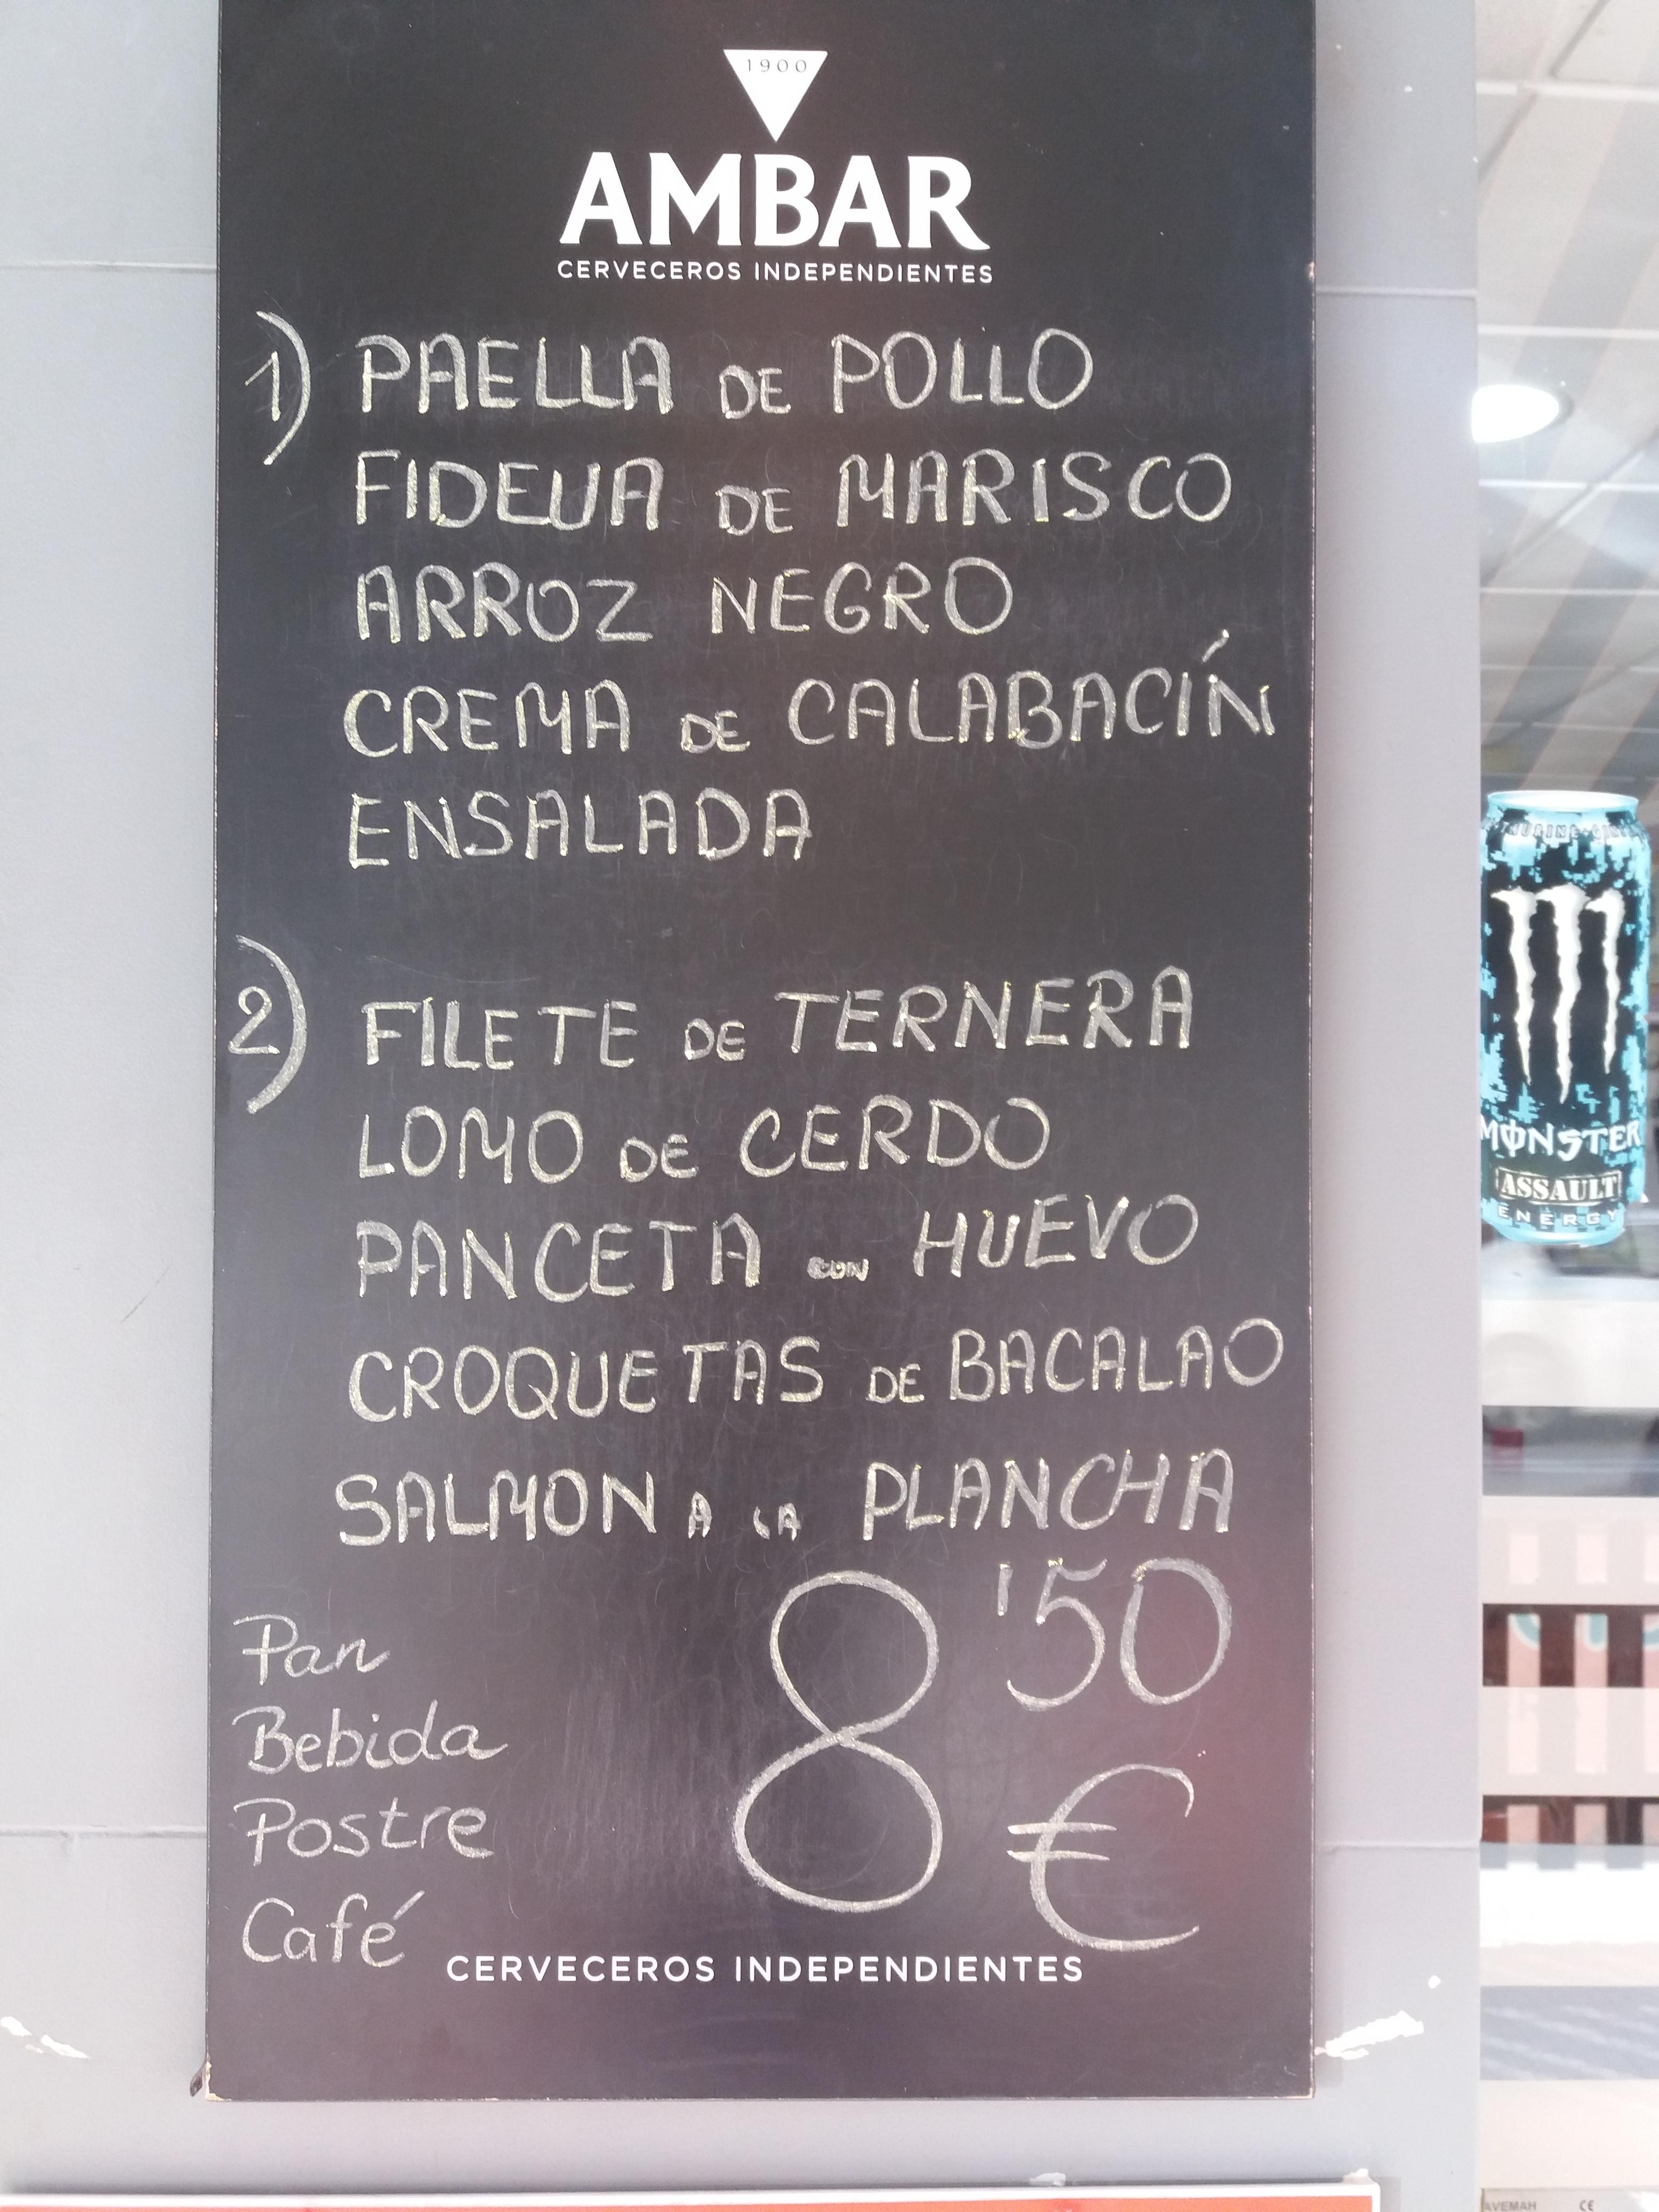 1900
AMBAR
CERVECEROS INDEPENDIENTES
1) PAELLA DE POLLO
FIDEUA DE MARISCO
ARROZ NEGRO
CREMA DE CALABACÍN
ENSALADA
2) FILETE DE TERNERA
LOMO DE CERDO
PANCETA CON HUEVO
CROQUETAS DE BACALAO
SALMON A LA PLANCHA
8'50 €
Pan
Bebida
Postre
Café
CERVECEROS INDEPENDIENTES
MONSTER
ASSAULT
ENERGY
AVEMAH CE